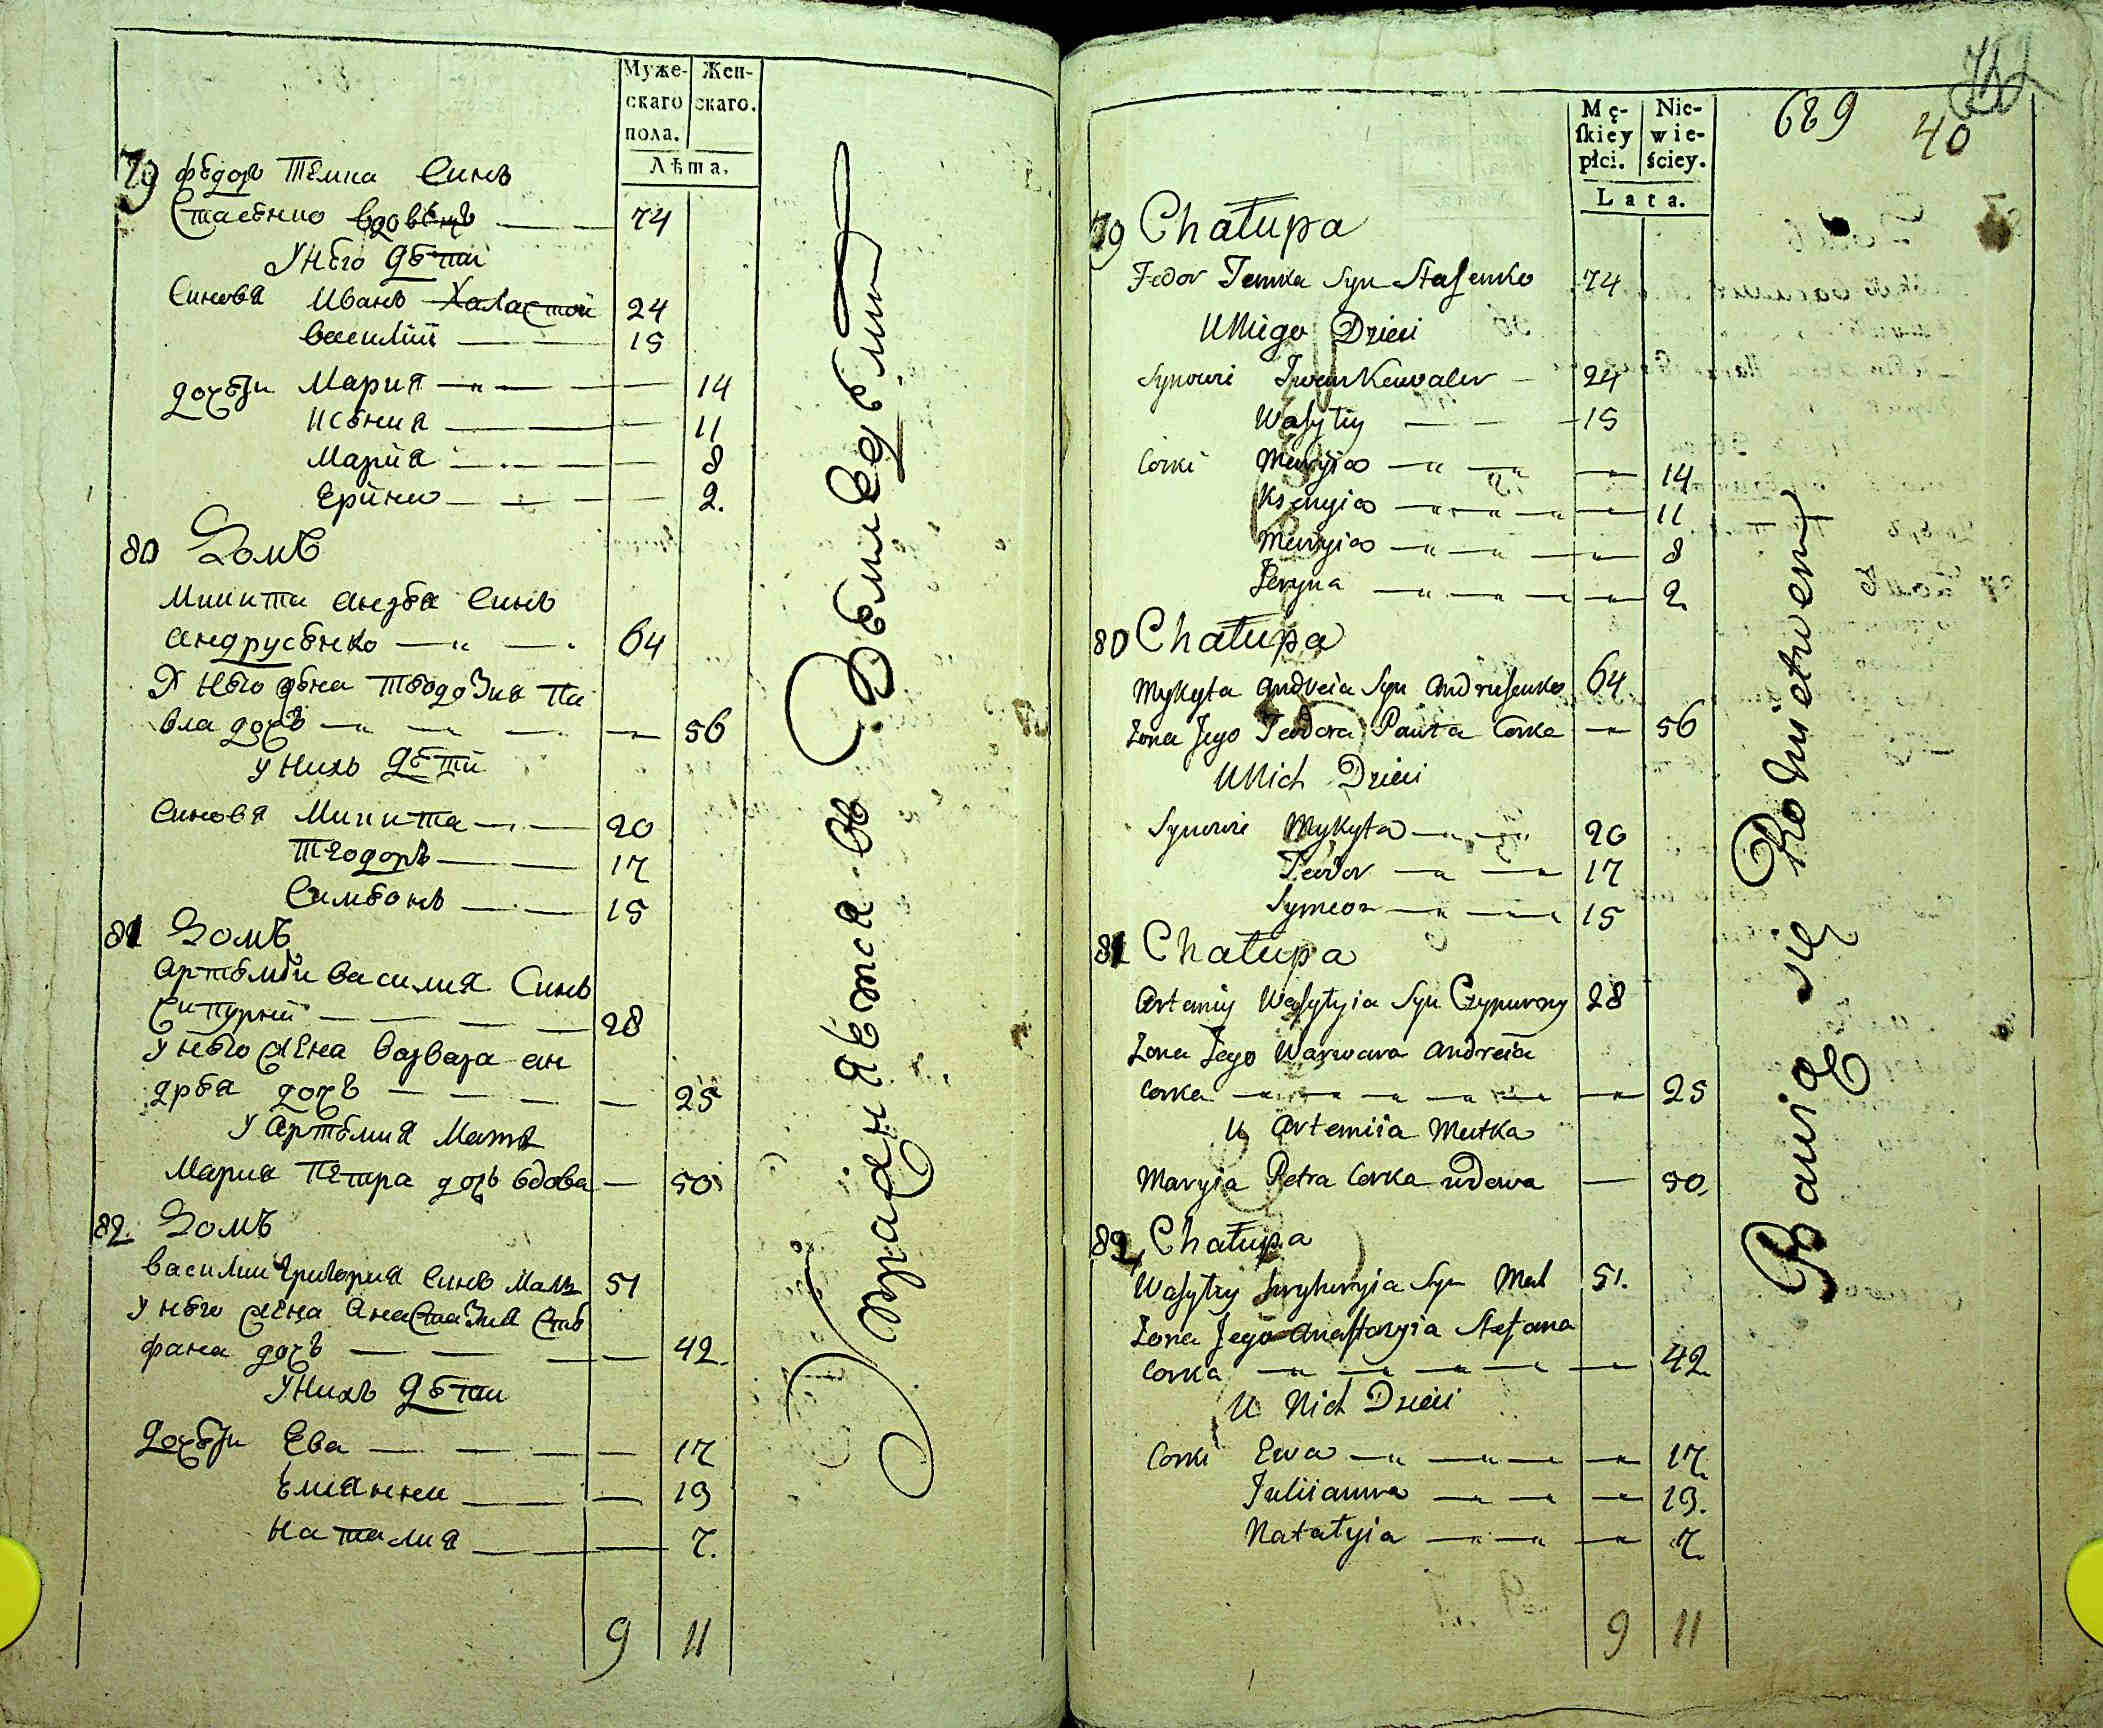 Муже-
скаго
пола.
Жен-
скаго.
Лѣта.
79 Федоръ Темка Синъ
Стасенко вдовецъ — 74
У Него Дети
Синовя Иванъ Халастой 24
Василий — 15
дочери Мария — 14
Ксения — 11
Мария — 8
Ерина — 2.
80 Домъ
Микита Андрея Синъ
Андрусенко — 64
У Него жена Теодозия Па
вла дочъ — 56
У Нихъ Дети
Синовя Микита — 20
Теодоръ — 17
Симеонъ — 15
81 Домъ
Артемий Василия Синъ
Сипурний — 28
У Него жена Варвара Ан
дрея дочъ — 25
У Артемия Мать
Мария Петра дочъ вдова — 50
82. Домъ
Василий Григория Синъ Маль 51
У Него жена Анастазия Сте
фана дочъ — 42.
У Нихъ Дети
Дочери Ева — 17
Емиянна — 13
Наталия — 7.
9 11
689
40
Mę-
ſkiey
płci.
Nie-
wie-
ściey.
Lata.
79 Chałupa
Fedor Temka Syn Stasenko 74
U Niego Dzieci
Synowie Iwan Kawaler — 24
Wasyliy — 15
Corki Maryia — 14
Ksenyia — 11
Maryia — 8
Jeryna — 2.
80 Chałupa
Mykyta Andreia Syn Andrusenko 64
Zona Jego Teodora Pawła Corka — 56
U Nich Dzieci
Synowie Mykyta — 20
Teodor — 17
Symeon — 15
81 Chałupa
Artemiy Wasylyia Syn Czypurny 28
Zona Jego Warwara Andreia
Corka — 25
U Artemiia Matka
Maryia Petra Corka wdowa — 50.
82. Chałupa
Wasyliy Hryhoryia Syn Mal 51.
Zona Jego Anastazyia Stefana
Corka — 42.
U Nich Dzieci
Corki Ewa — 17.
Juliianna — 13.
Natalyia — 7.
9 11
Bawią się